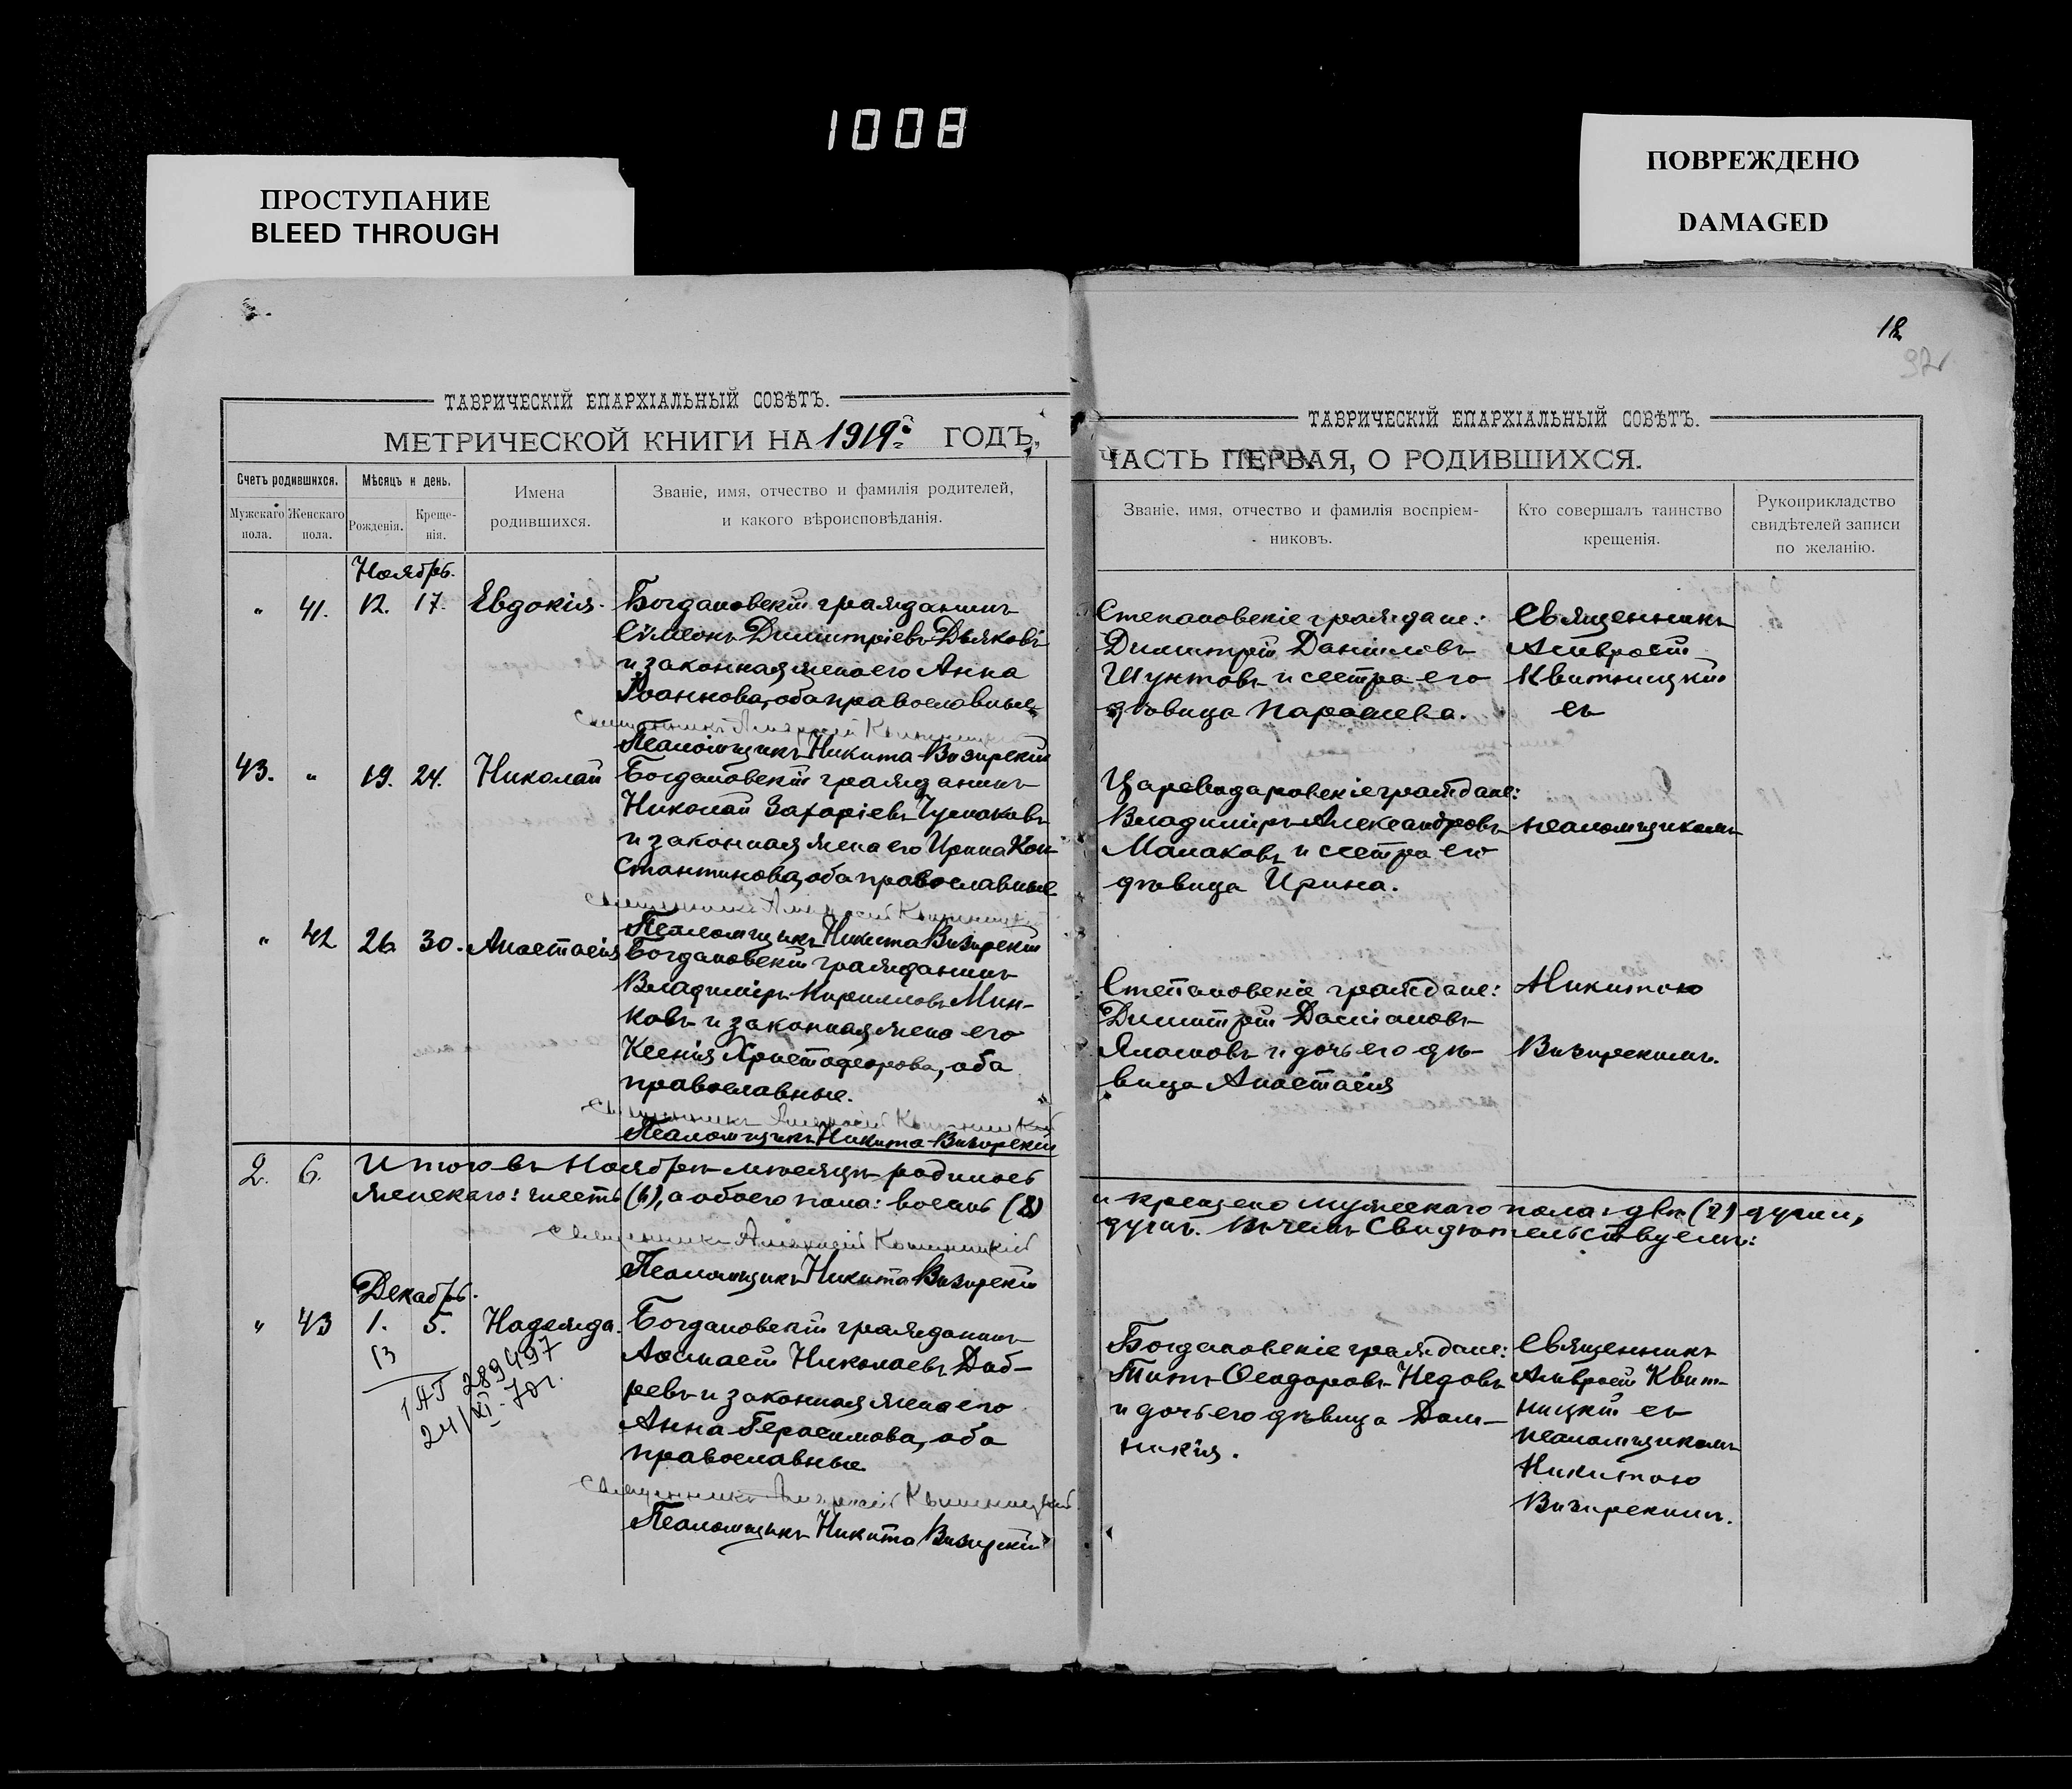 1008
ПРОСТУПАНИЕ
BLEED THROUGH
ПОВРЕЖДЕНО
DAMAGED
18
ТАВРИЧЕСКІЙ ЕПАРХІАЛЬНЫЙ СОВѢТЪ.
МЕТРИЧЕСКОЙ КНИГИ НА 1919й ГОДЪ,
Счетъ родившихся.
Мужскаго пола.
Женскаго пола.
Мѣсяцъ и день.
Рожденія.
Креще-
нія.
Имена
родившихся.
Званіе, имя, отчество и фамилія родителей,
и какого вѣроисповѣданія.
Ноябрь.
" 41. 12. 17. Евдокія. Богдановскій гражданинъ
Сімеонъ Димитріевъ Дьяковъ
и законная жена его Анна
Іоаннова, оба православные
Священникъ Амвросій Квитницкій
Псаломщикъ Никита Визирскій
43. " 19. 24. Николай Богдановскій гражданинъ
Николай Захаріевъ Чумаковъ
и законная жена его Ирина Кон-
стантинова, оба православные
Священникъ Амвросій Квитницкій
Псаломщикъ Никита Визирскій
" 42 26 30. Анастасія Богдановскій гражданинъ
Владиміръ Кирилловъ Мин-
ковъ и законная жена его
Ксенія Христофорова, оба
православные.
Священникъ Амвросій Квитницкій
Псаломщикъ Никита Визирскій
2. 6. Итого въ Ноябрѣ мѣсяцѣ родилось
женскаго: шесть (6), а обоего пола: восемь (8)
Священникъ Амвросій Квитницкій
Псаломщикъ Никита Визирскій
Декабрь.
" 43 1. 5. Надежда. Богдановскій гражданинъ
13
289497
24/XI-70г.
Николаевъ Доб-
ревъ и законная жена его
Анна Герасимова, оба
православные.
Священникъ Амвросій Квитницкій
Псаломщикъ Никита Визирскій
ТАВРИЧЕСКІЙ ЕПАРХІАЛЬНЫЙ СОВѢТЪ.
ЧАСТЬ ПЕРВАЯ, О РОДИВШИХСЯ.
Званіе, имя, отчество и фамилія воспріем-
никовъ.
Кто совершалъ таинство
крещенія.
Рукоприкладство
свидѣтелей записи
по желанію.
Степановскіе граждане:
Димитрій Даніиловъ
Шунтовъ и сестра его
дѣвица Параскева.
Священникъ
Амвросій
Квитницкій
съ
Цареводаровскіе граждане:
Владиміръ Александровъ
Малаковъ и сестра его
дѣвица Ирина.
псаломщикомъ
Степановскіе граждане:
Димитрій
и дочь его дѣ-
вица Анастасія
Никитою
Визирскимъ.
и крещено мужескаго пола: двѣ (2) души,
душъ. Въ чемъ Свидѣтельствуемъ:
Богдановскіе граждане:
Титъ Ѳеодоровъ Недовъ
и дочь его дѣвица Дом-
никія.
Священникъ
Амвросій Квит-
ницкій съ
псаломщикомъ
Никитою
Визирскимъ.